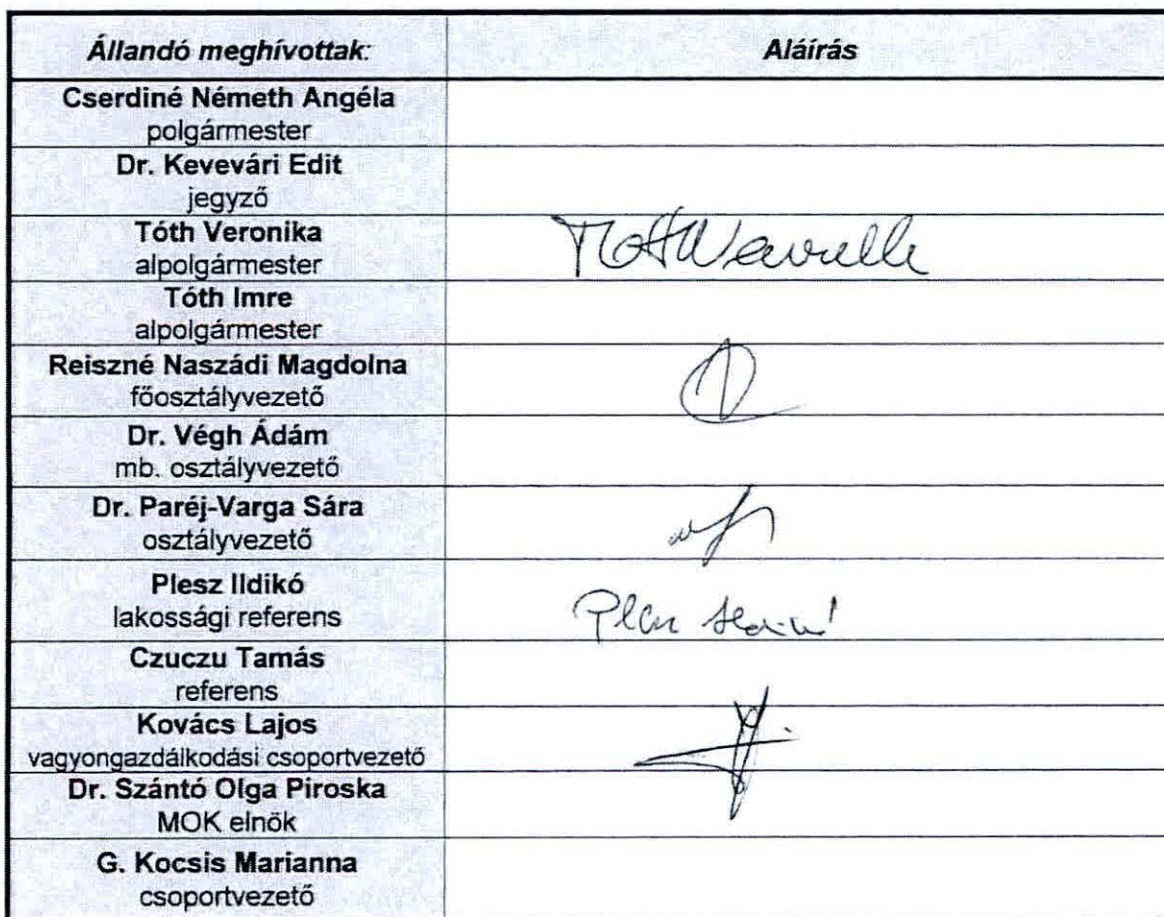 Állandó meghívottak: Aláírás
Cserdiné Németh Angéla
polgármester
Dr. Kevevári Edit
jegyző
Tóth Veronika
alpolgármester
Tóth Imre
alpolgármester
Reiszné Naszádi Magdolna
főosztályvezető
Dr. Végh Ádám
mb. osztályvezető
Dr. Paréj-Varga Sára
osztályvezető
Plesz Ildikó
lakossági referens
Czuczu Tamás
referens
Kovács Lajos
vagyongazdálkodási csoportvezető
Dr. Szántó Olga Piroska
MOK elnök
G. Kocsis Marianna
csoportvezető